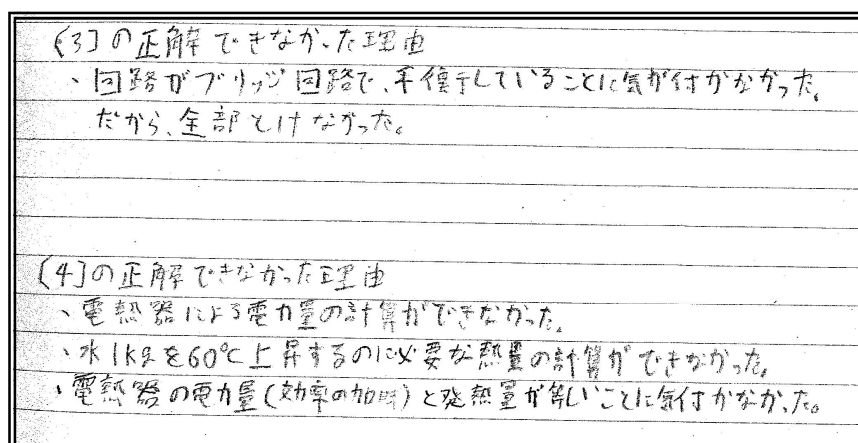 〔3〕の正解できなかった理由
・回路がブリッジ回路で、平衡していることに気が付かなかった。
だから、全部とけなかった。
〔4〕の正解できなかった理由
・電熱器による電力量の計算ができなかった。
・水1kgを60℃上昇するのに必要な熱量の計算ができなかった。
・電熱器の電力量(効率の加味)と発熱量が等しいことに気付かなかった。